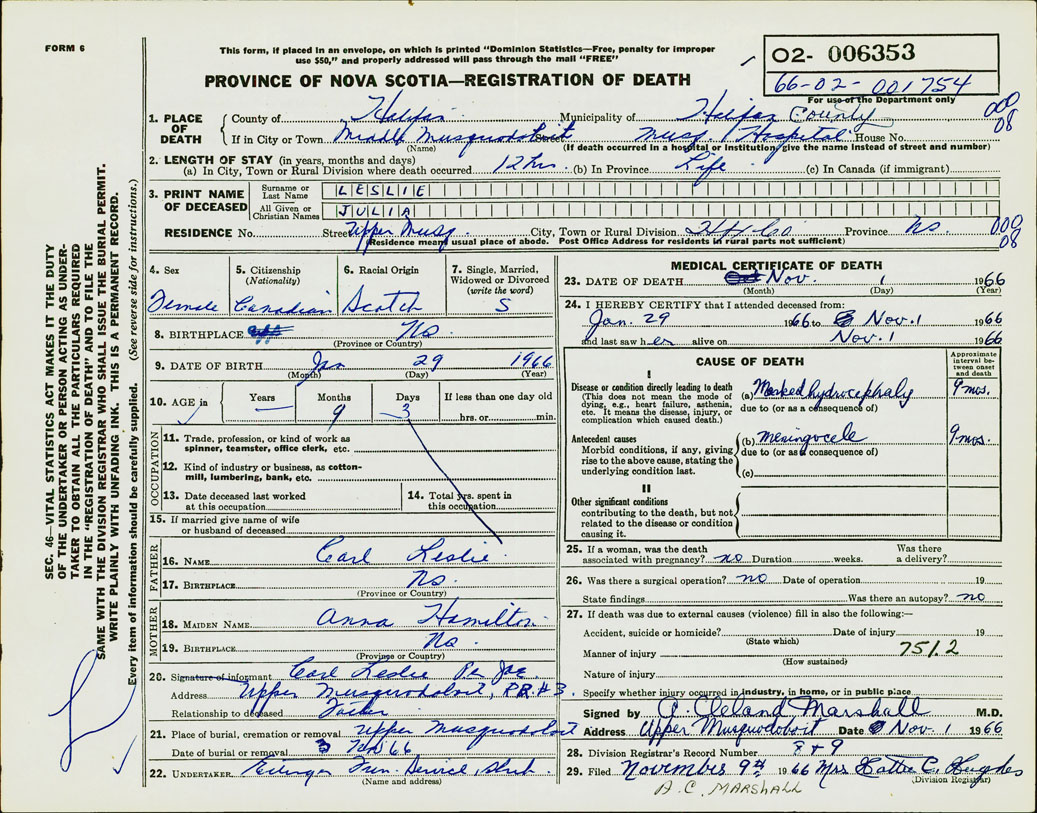 FORM 6
This form, if placed in an envelope, on which is printed "Dominion Statistics—Free, penalty for improper
use $50," and properly addressed will pass through the mail "FREE"
PROVINCE OF NOVA SCOTIA—REGISTRATION OF DEATH
02- 006353
66-02-001754
For use of the Department only
1. PLACE OF DEATH
County of Halifax Municipality of Halifax County 000
If in City or Town Middle Musquodoboit Street Musq. Hospital House No. 08
(Name) (If death occurred in a hospital or institution, give the name instead of street and number)
2. LENGTH OF STAY (in years, months and days)
(a) In City, Town or Rural Division where death occurred 12 hrs. (b) In Province Life (c) In Canada (if immigrant)
3. PRINT NAME OF DECEASED
Surname or Last Name LESLIE
All Given or Christian Names JULIA
RESIDENCE No. Street Upper Musq. City, Town or Rural Division Hfx Co Province NS 000
(Residence means usual place of abode. Post Office Address for residents in rural parts not sufficient) 08
4. Sex
Female
5. Citizenship
(Nationality)
Canadian
6. Racial Origin
Scotch
7. Single, Married,
Widowed or Divorced
(write the word)
S
8. BIRTHPLACE NS.
(Province or Country)
9. DATE OF BIRTH Jan 29 1966
(Month) (Day) (Year)
10. AGE in
Years Months Days If less than one day old
9 3 hrs. or min.
OCCUPATION
11. Trade, profession, or kind of work as
spinner, teamster, office clerk, etc.
12. Kind of industry or business, as cotton-
mill, lumbering, bank, etc.
13. Date deceased last worked
at this occupation
14. Total yrs. spent in
this occupation
15. If married give name of wife
or husband of deceased
FATHER
16. NAME Carl Leslie
17. BIRTHPLACE NS.
(Province or Country)
MOTHER
18. MAIDEN NAME Anna Hamilton
19. BIRTHPLACE NS
(Province or Country)
20. Signature of informant Carl Leslie
Address Upper Musquodoboit, RR#3
Relationship to deceased Father
21. Place of burial, cremation or removal Upper Musquodoboit
Date of burial or removal 3 Nov 66
22. UNDERTAKER Fun. Service
(Name and address)
MEDICAL CERTIFICATE OF DEATH
23. DATE OF DEATH Nov. 1 1966
(Month) (Day) (Year)
24. I HEREBY CERTIFY that I attended deceased from:
Jan. 29 1966 to Nov. 1 1966
and last saw her alive on Nov. 1 1966
CAUSE OF DEATH
Approximate
interval be-
tween onset
and death
I
Disease or condition directly leading to death
(This does not mean the mode of
dying, e.g., heart failure, asthenia,
etc. It means the disease, injury, or
complication which caused death.)
(a) Marked hydrocephaly 9 mos.
due to (or as a consequence of)
Antecedent causes
Morbid conditions, if any, giving
rise to the above cause, stating the
underlying condition last.
(b) meningocele 9 mos.
due to (or as a consequence of)
(c)
II
Other significant conditions
contributing to the death, but not
related to the disease or condition
causing it.
25. If a woman, was the death
associated with pregnancy? no Duration weeks. Was there
a delivery?
26. Was there a surgical operation? no Date of operation 19
State findings Was there an autopsy? no
27. If death was due to external causes (violence) fill in also the following:—
Accident, suicide or homicide? Date of injury 19
(State which)
Manner of injury 751.2
(How sustained)
Nature of injury
Specify whether injury occurred in industry, in home, or in public place
Signed by A. Cleland Marshall M.D.
Address Upper Musquodoboit Date Nov. 1 1966
28. Division Registrar's Record Number 8 + 9
29. Filed November 9th 1966 Mrs Hattie C. Hughes
(Division Registrar)
A.C. MARSHALL
SEC. 46—VITAL STATISTICS ACT MAKES IT THE DUTY
OF THE UNDERTAKER OR PERSON ACTING AS UNDER-
TAKER TO OBTAIN ALL THE PARTICULARS REQUIRED
IN THE "REGISTRATION OF DEATH" AND TO FILE THE
SAME WITH THE DIVISION REGISTRAR WHO SHALL ISSUE THE BURIAL PERMIT.
WRITE PLAINLY WITH UNFADING INK. THIS IS A PERMANENT RECORD.
Every item of information should be carefully supplied. (See reverse side for instructions.)